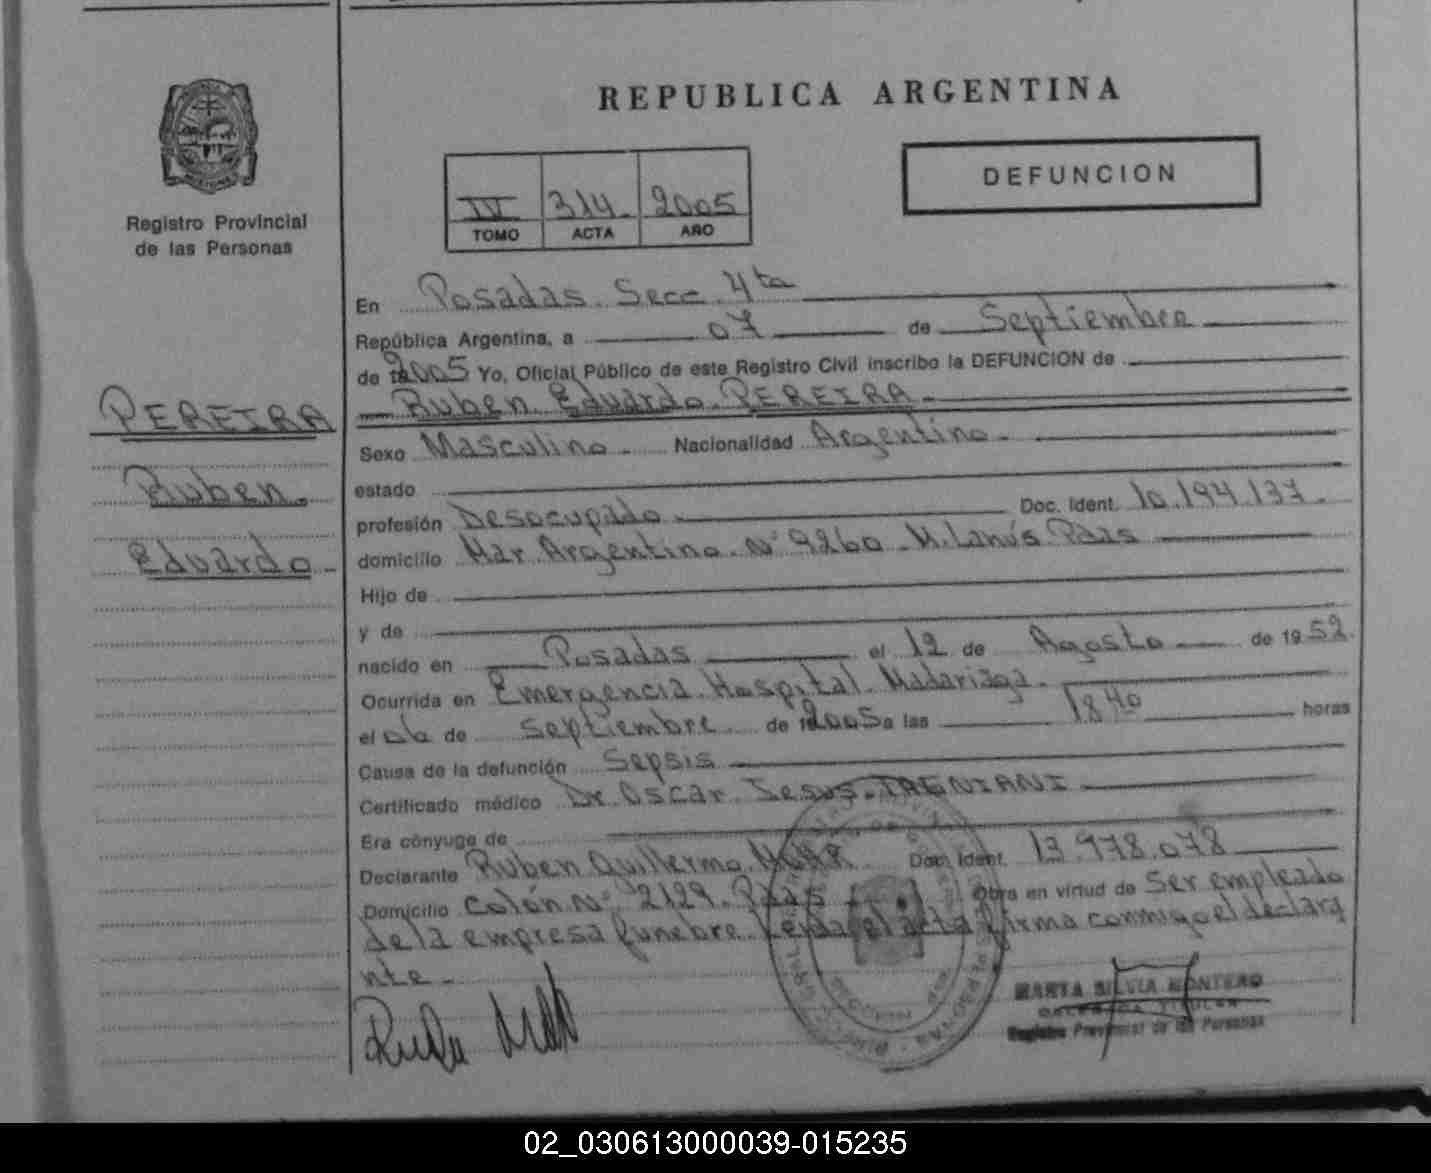 REPUBLICA ARGENTINA
DEFUNCION
IV 314 2005
TOMO ACTA AÑO
Registro Provincial
de las Personas
PEREIRA
Ruben
Eduardo
En Posadas Secc 4ta
República Argentina, a 07 de Septiembre
de 2005 Yo, Oficial Público de este Registro Civil inscribo la DEFUNCION de
Ruben Eduardo PEREIRA
Sexo Masculino Nacionalidad Argentino
estado
profesión Desocupado Doc. Ident. 10.194.137
domicilio Mar Argentino N° 9260 M. Lanús Pdas
Hijo de
y de
nacido en Posadas el 12 de Agosto de 1952
Ocurrida en Emergencia Hospital Madariaga
el 06 de Septiembre de 2005 a las 18 40 horas
Causa de la defunción Sepsis
Certificado médico Dr. Oscar Jesus
Era cónyuge de
Declarante Ruben Guillermo Doc. Ident. 13.978.078
Domicilio Colón N° 2129 Pdas Obra en virtud de Ser empleado
de la empresa funebre Leida el acta firma conmigo el declara
nte
MARTA SILVIA MONTERO
Registro Provincial de las Personas
02_030613000039-015235